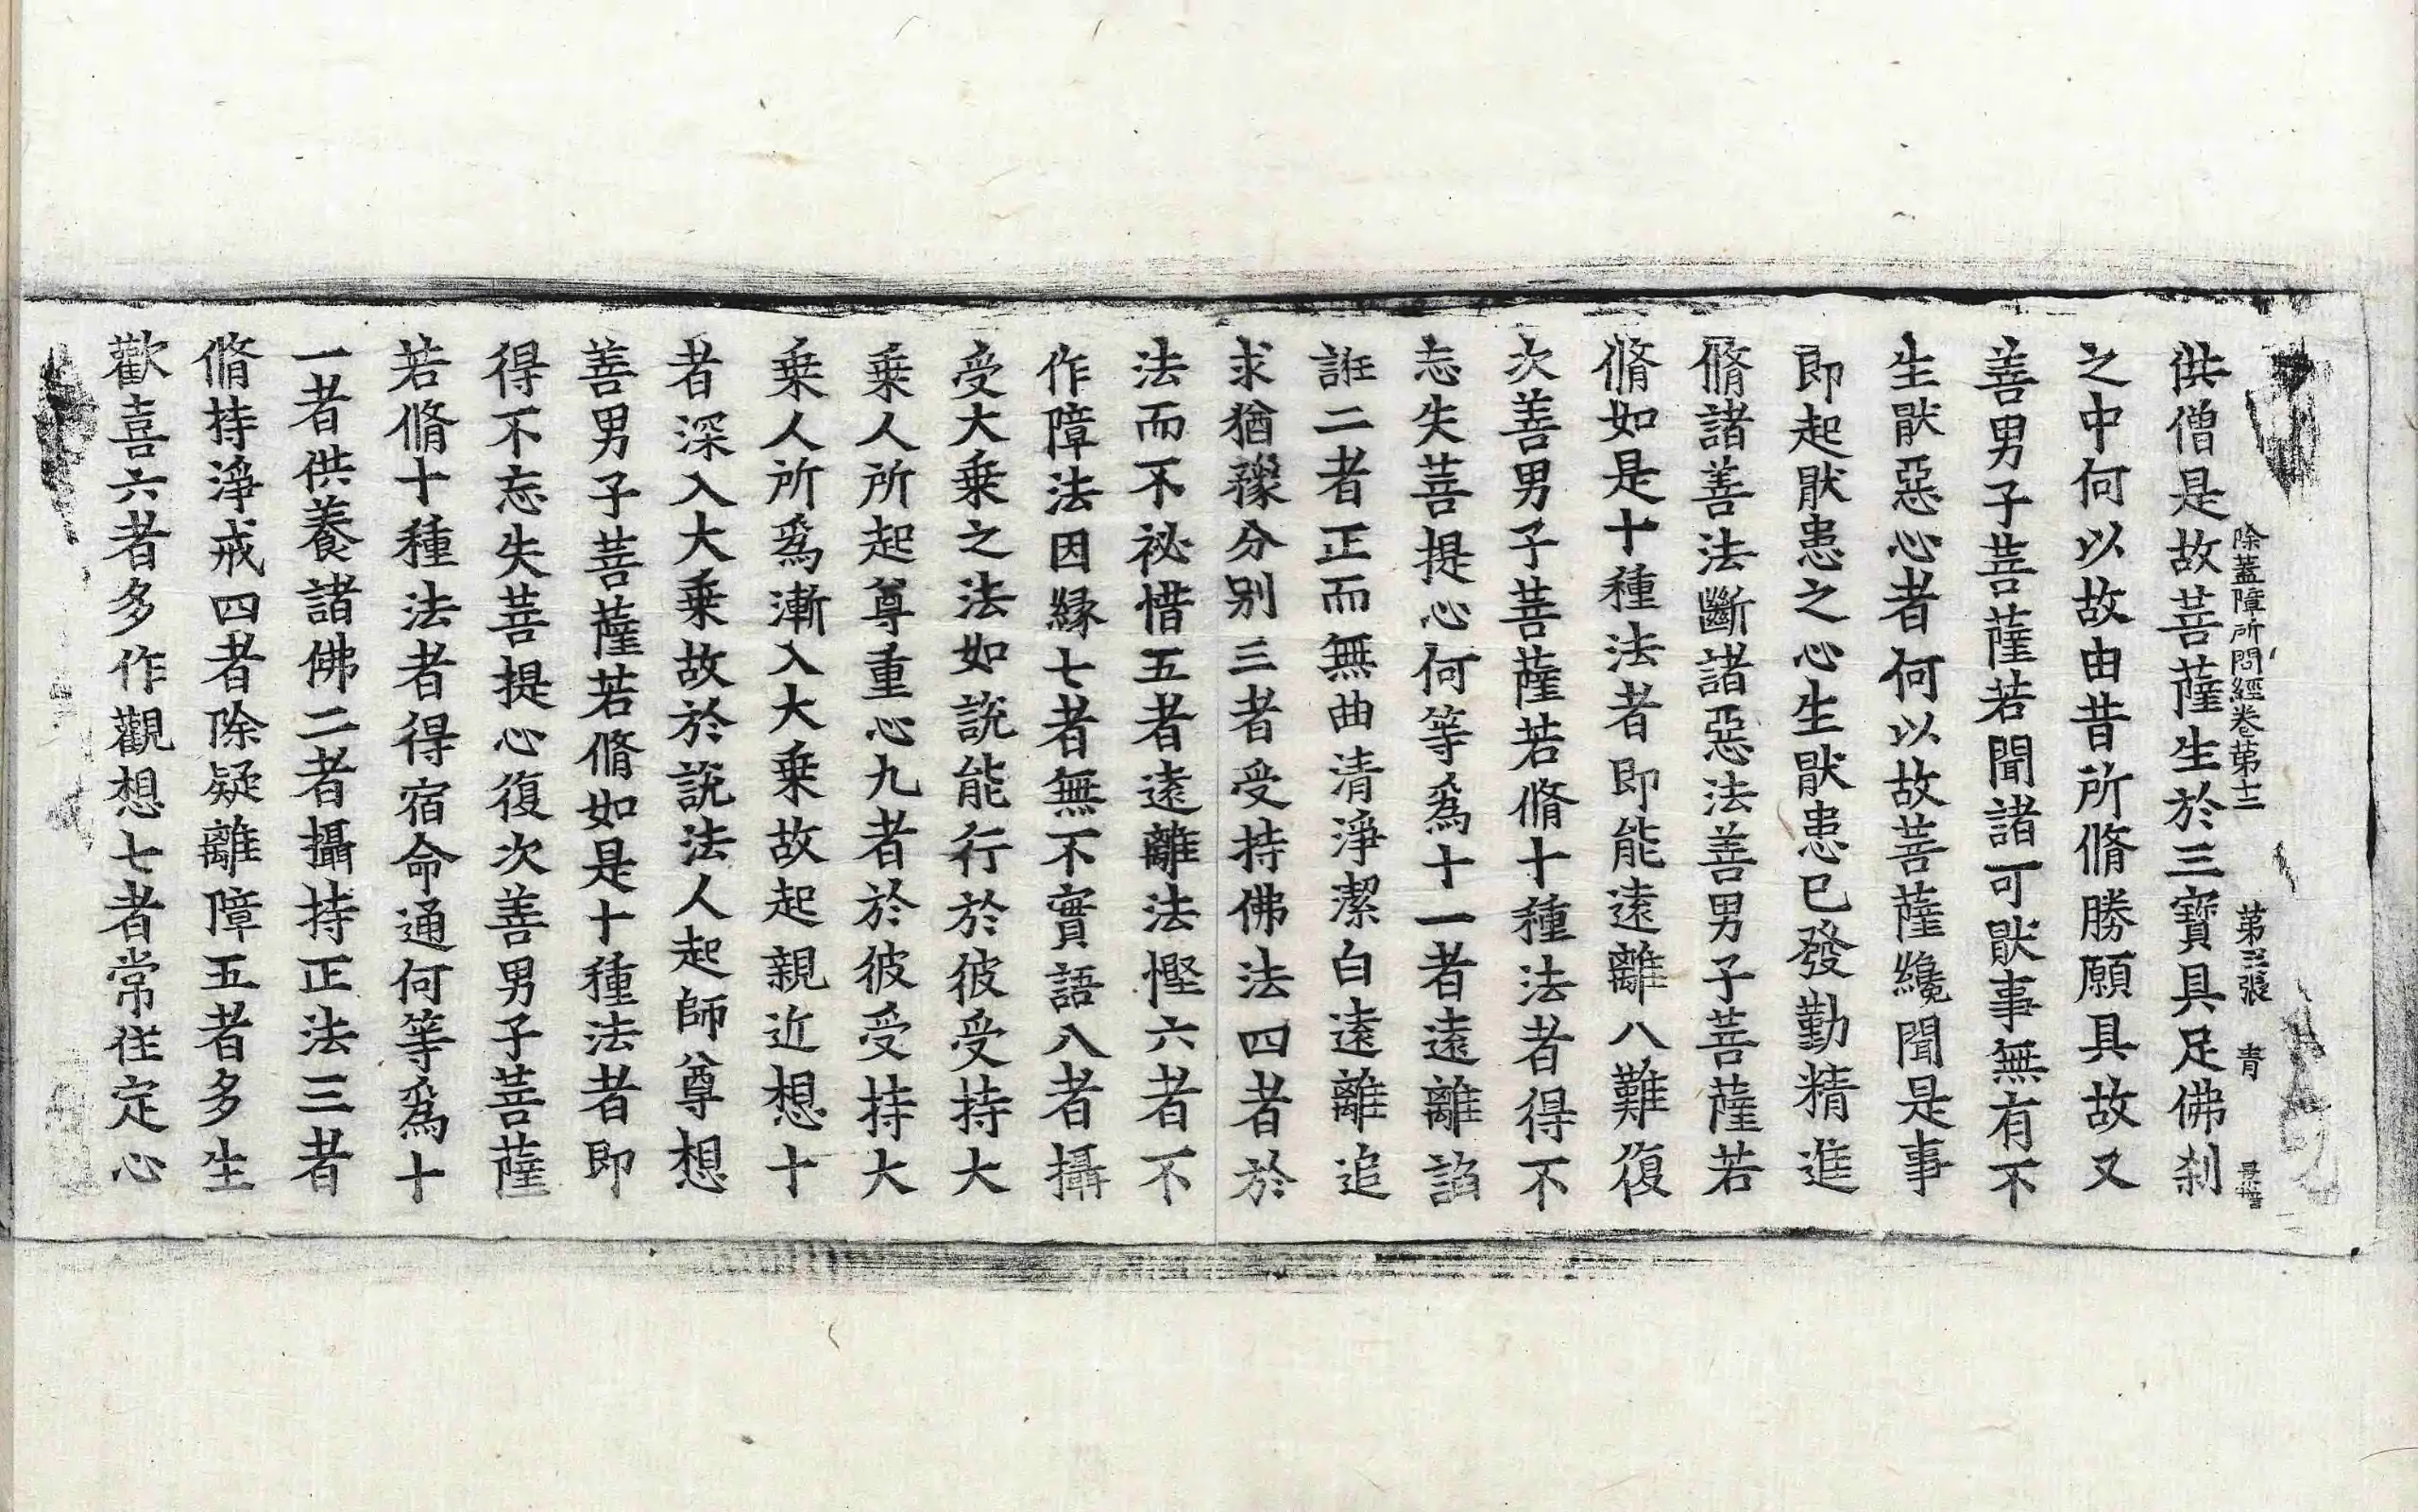 除蓋障所問經卷第十二 第三張 青
供僧是故菩薩生於三寶具足佛刹
之中何以故由昔所脩勝願具故又
善男子菩薩若聞諸可猒事無有不
生猒惡心者何以故菩薩纔聞是事
即起猒患之心生猒患已發勤精進
脩諸善法斷諸惡法善男子菩薩若
脩如是十種法者即能遠離八難復
次善男子菩薩若脩十種法者得不
忘失菩提心何等爲十一者遠離諂
誑二者正而無曲清淨潔白遠離追
求猶豫分别三者受持佛法四者於
法而不祕惜五者遠離法慳六者不
作障法因縁七者無不實語八者攝
受大乗之法如說能行於彼受持大
乗人所起尊重心九者於彼受持大
乗人所爲漸入大乗故起親近想十
者深入大乗故於說法人起師尊想
善男子菩薩若脩如是十種法者即
得不忘失菩提心復次善男子菩薩
若脩十種法者得宿命通何等爲十
一者供養諸佛二者攝持正法三者
脩持淨戒四者除疑離障五者多生
歡喜六者多作觀想七者常住定心